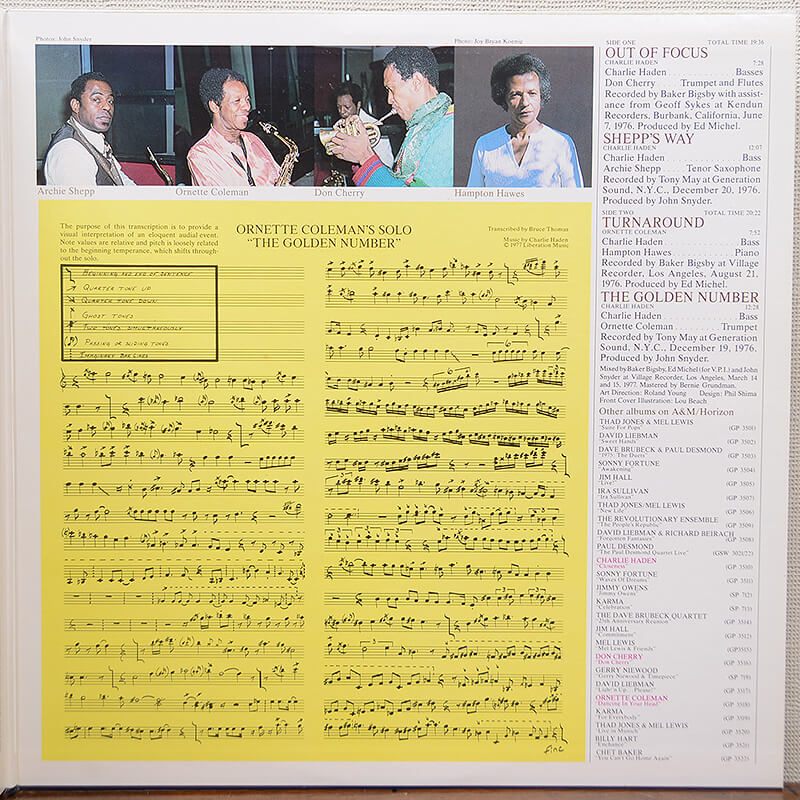 Photos: John Snyder
Photo: Joy Bryan Koenig
Archie Shepp
Ornette Coleman
Don Cherry
Hampton Hawes
The purpose of this transcription is to provide a
visual interpretation of an eloquent audial event.
Note values are relative and pitch is loosely related
to the beginning temperance, which shifts through-
out the solo.
ORNETTE COLEMAN'S SOLO
"THE GOLDEN NUMBER"
Transcribed by Bruce Thomas
Music by Charlie Haden
© 1977 Liberation Music
BEGINNING AND END OF SENTENCE
QUARTER TONE UP
QUARTER TONE DOWN
GHOST TONES
TWO TONES SIMULTANEOUSLY
PASSING OR SLIDING TONES
IMAGINARY BAR LINES
fine
SIDE ONE TOTAL TIME 19:36
OUT OF FOCUS
CHARLIE HADEN 7:28
Charlie Haden . . . . . . . . . . . Basses
Don Cherry . . . . Trumpet and Flutes
Recorded by Baker Bigsby with assist-
ance from Geoff Sykes at Kendun
Recorders, Burbank, California, June
7, 1976. Produced by Ed Michel.
SHEPP'S WAY
CHARLIE HADEN 12:07
Charlie Haden . . . . . . . . . . . . Bass
Archie Shepp . . . . . Tenor Saxophone
Recorded by Tony May at Generation
Sound, N.Y.C., December 20, 1976.
Produced by John Snyder.
SIDE TWO TOTAL TIME 20:22
TURNAROUND
ORNETTE COLEMAN 7:52
Charlie Haden . . . . . . . . . . . . Bass
Hampton Hawes . . . . . . . . . . Piano
Recorded by Baker Bigsby at Village
Recorder, Los Angeles, August 21,
1976. Produced by Ed Michel.
THE GOLDEN NUMBER
CHARLIE HADEN 12:28
Charlie Haden . . . . . . . . . . . . Bass
Ornette Coleman . . . . . . . . Trumpet
Recorded by Tony May at Generation
Sound, N.Y.C., December 19, 1976.
Produced by John Snyder.
Mixed by Baker Bigsby, Ed Michel (for V.P.I.) and John
Snyder at Village Recorder, Los Angeles, March 14
and 15, 1977. Mastered by Bernie Grundman.
Art Direction: Roland Young Design: Phil Shima
Front Cover Illustration: Lou Beach
Other albums on A&M/Horizon
THAD JONES & MEL LEWIS
"Suite For Pops" (GP 3501)
DAVID LIEBMAN
"Sweet Hands" (GP 3502)
DAVE BRUBECK & PAUL DESMOND
"1975: The Duets" (GP 3503)
SONNY FORTUNE
"Awakening" (GP 3504)
JIM HALL
"Live!" (GP 3505)
IRA SULLIVAN
"Ira Sullivan" (GP 3507)
THAD JONES/MEL LEWIS
"New Life" (GP 3506)
THE REVOLUTIONARY ENSEMBLE
"The People's Republic" (GP 3509)
DAVID LIEBMAN & RICHARD BEIRACH
"Forgotten Fantasies" (GP 3508)
PAUL DESMOND
"The Paul Desmond Quartet Live" (GSW 3021/22)
CHARLIE HADEN
"Closeness" (GP 3510)
SONNY FORTUNE
"Waves Of Dreams" (GP 3511)
JIMMY OWENS
"Jimmy Owens" (SP 712)
KARMA
"Celebration" (SP 713)
THE DAVE BRUBECK QUARTET
"25th Anniversary Reunion" (GP 3514)
JIM HALL
"Commitment" (GP 3512)
MEL LEWIS
"Mel Lewis & Friends" (GP3515)
DON CHERRY
"Don Cherry" (GP 3516)
GERRY NIEWOOD
"Gerry Niewood & Timepiece" (SP 719)
DAVID LIEBMAN
"Light'n Up, Please!" (GP 3517)
ORNETTE COLEMAN
"Dancing In Your Head" (GP 3518)
KARMA
"For Everybody" (GP 3519)
THAD JONES & MEL LEWIS
"Live in Munich" (GP 3520)
BILLY HART
"Enchance" (GP 3521)
CHET BAKER
"You Can't Go Home Again" (GP 3522)